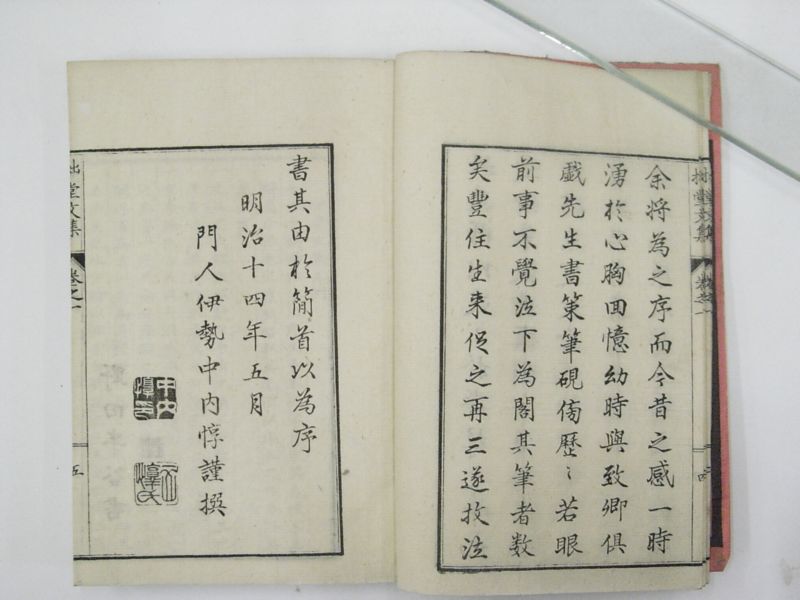 余将為之序而今昔之感一時
湧於心胸回憶幼時與致卿俱
戯先生書策筆硯傍歴〻若眼
前事不覺泣下為閣其筆者数
矣豐住生来促之再三遂抆泣
書其由於簡首以為序
明治十四年五月
門人伊勢中内惇謹撰
拙堂文集
卷之一
五